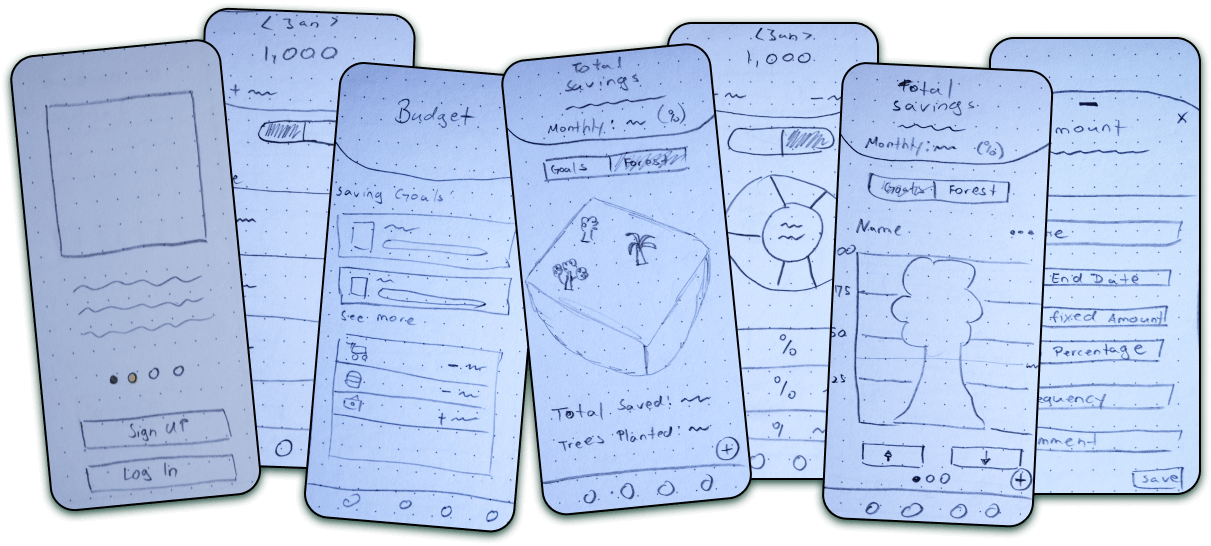 Sign UP
Log In
< Jan >
1,000
Budget
Saving Goals
See more
Total
savings
Monthly: (%)
Goals
Forest
Total Saved:
Trees Planted:
< Jan >
1,000
%
%
%
Total
savings
Monthly: (%)
Goals
Forest
Name
00
75
50
25
mount
x
ne
End Date
fixed Amount
Percentage
equency
mment
save